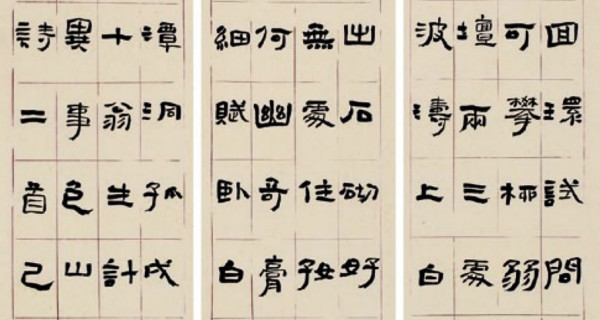 囬環試問
可攀極弱
壇兩三處
波濤上白
出石砌好
無處住好
何幽奇膏
細賦卧白
潭洞孤成
十翁生計
異事色山
詩二首己